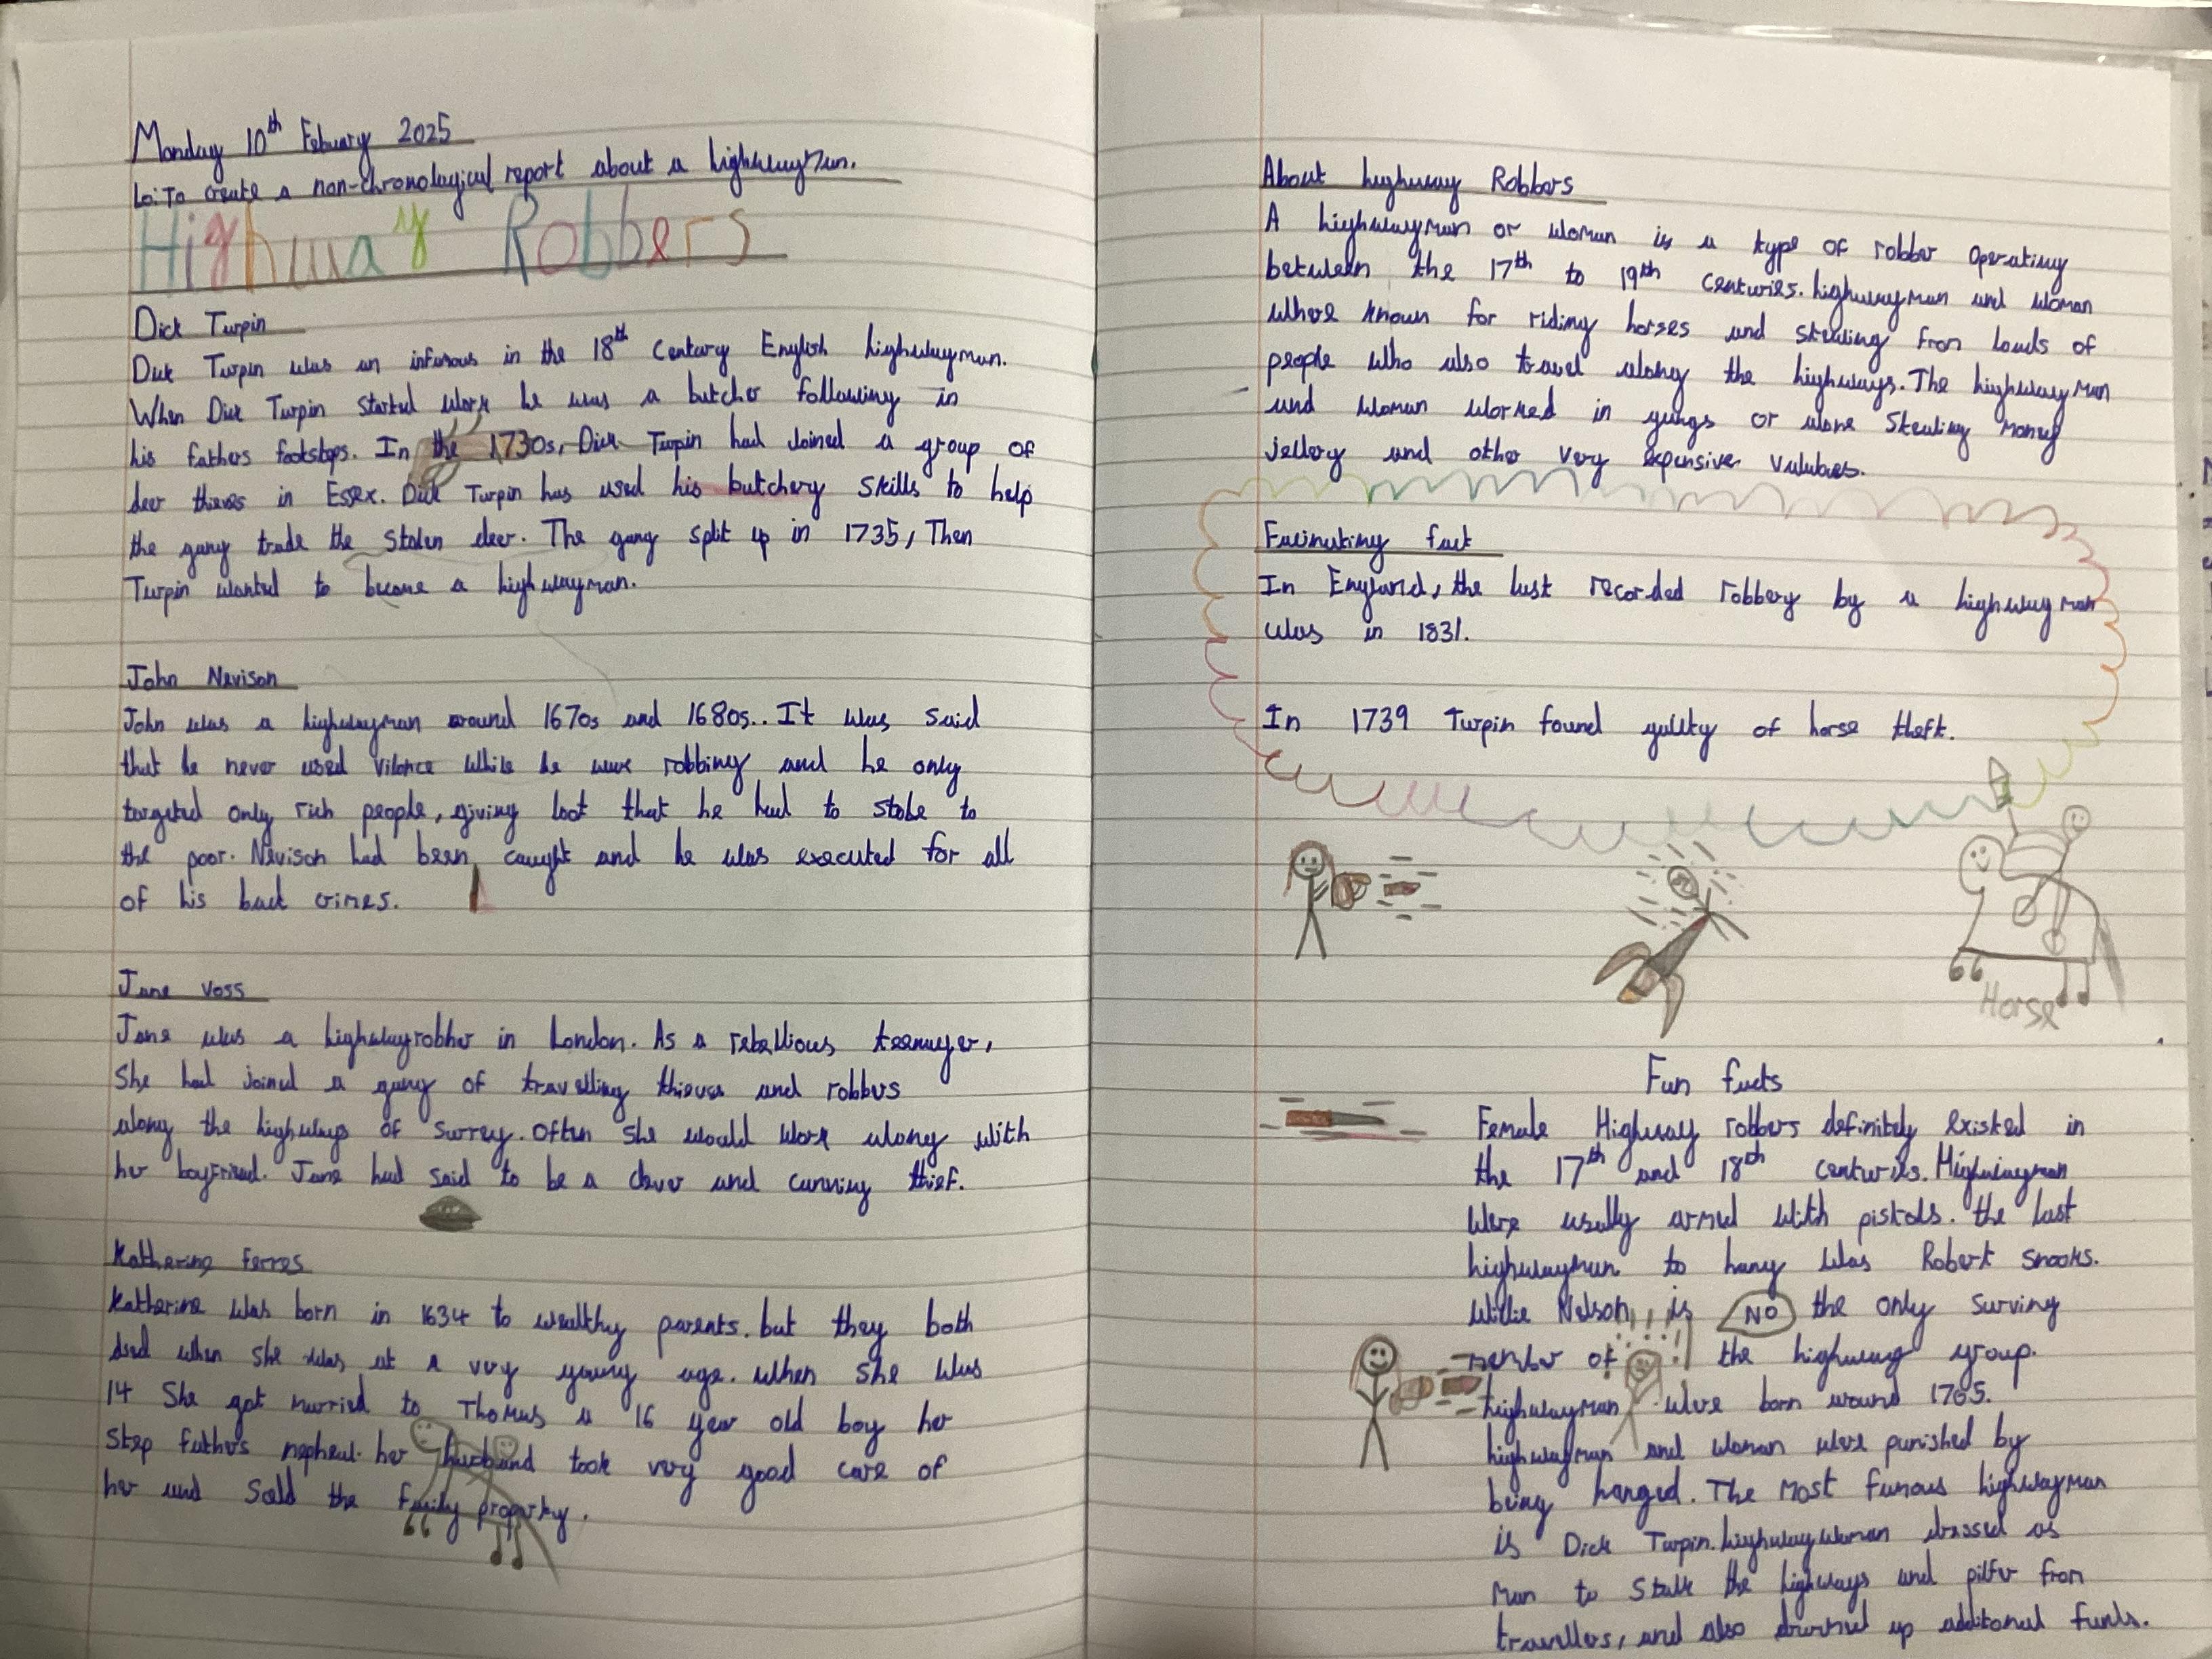 Monday 10th Febuary 2025
Lo: To create a non-chronological report about a highwayman.
Highway Robbers
Dick Turpin
Dick Turpin was an infamous in the 18th Century English highwayman.
When Dick Turpin started work he was a butcher following in
his fathers footsteps. In the 1730s, Dick Turpin had Joined a group of
deer thieves in Essex. Dick Turpin has used his butchery skills to help
the gang trade the stolen deer. The gang split up in 1735, Then
Turpin wanted to become a highwayman.
John Nevison
John was a highwayman around 1670s and 1680s.. It was said
that he never used vilonce while he were robbing and he only
targeted only rich people, giving loot that he had to stole to
the poor. Nevison had been caught and he was executed for all
of his bad crimes.
Jane Voss
Jane was a highwayrobber in London. As a rebellious teenager,
She had joined a gang of travelling thieves and robbers
along the highways of Surrey. Often she would work along with
her boyfriend. Jane had said to be a clever and cunning thief.
Katherine Ferres
Katherine was born in 1634 to wealthy parents. but they both
died when she was at a very young age. when she was
14 She got married to Thomas a 16 year old boy her
Step father's nepheul. her husband took very good care of
her and sold the family proparty.
About highway Robbers
A highwayman or woman is a type of robber operating
between the 17th to 19th centuries. highwayman and woman
where known for riding horses and stealing from loads of
people who also travel along the highways. The highwayman
and woman worked in gangs or alone stealing money
jellery and other very expensive
Facinating fact
In England, the last recorded robbery by a highwayman
was in 1831.
In 1739 Turpin found guilty of horse theft.
Horse
Fun facts
Female Highway robbers definitely existed in
the 17th and 18th centuries. Highwayman
were usally armed with pistols. the last
highwayman to hang was Robert snooks.
Willie Nelson is NO the only surving
member of the highway group.
highwayman were born around 1705.
highwayman and woman were punished by
being hanged. The most famous highwayman
is Dick Turpin. highwaywoman dressed as
man to stalk the highways and pilfer from
travellers, and also drurmed up additonal funds.